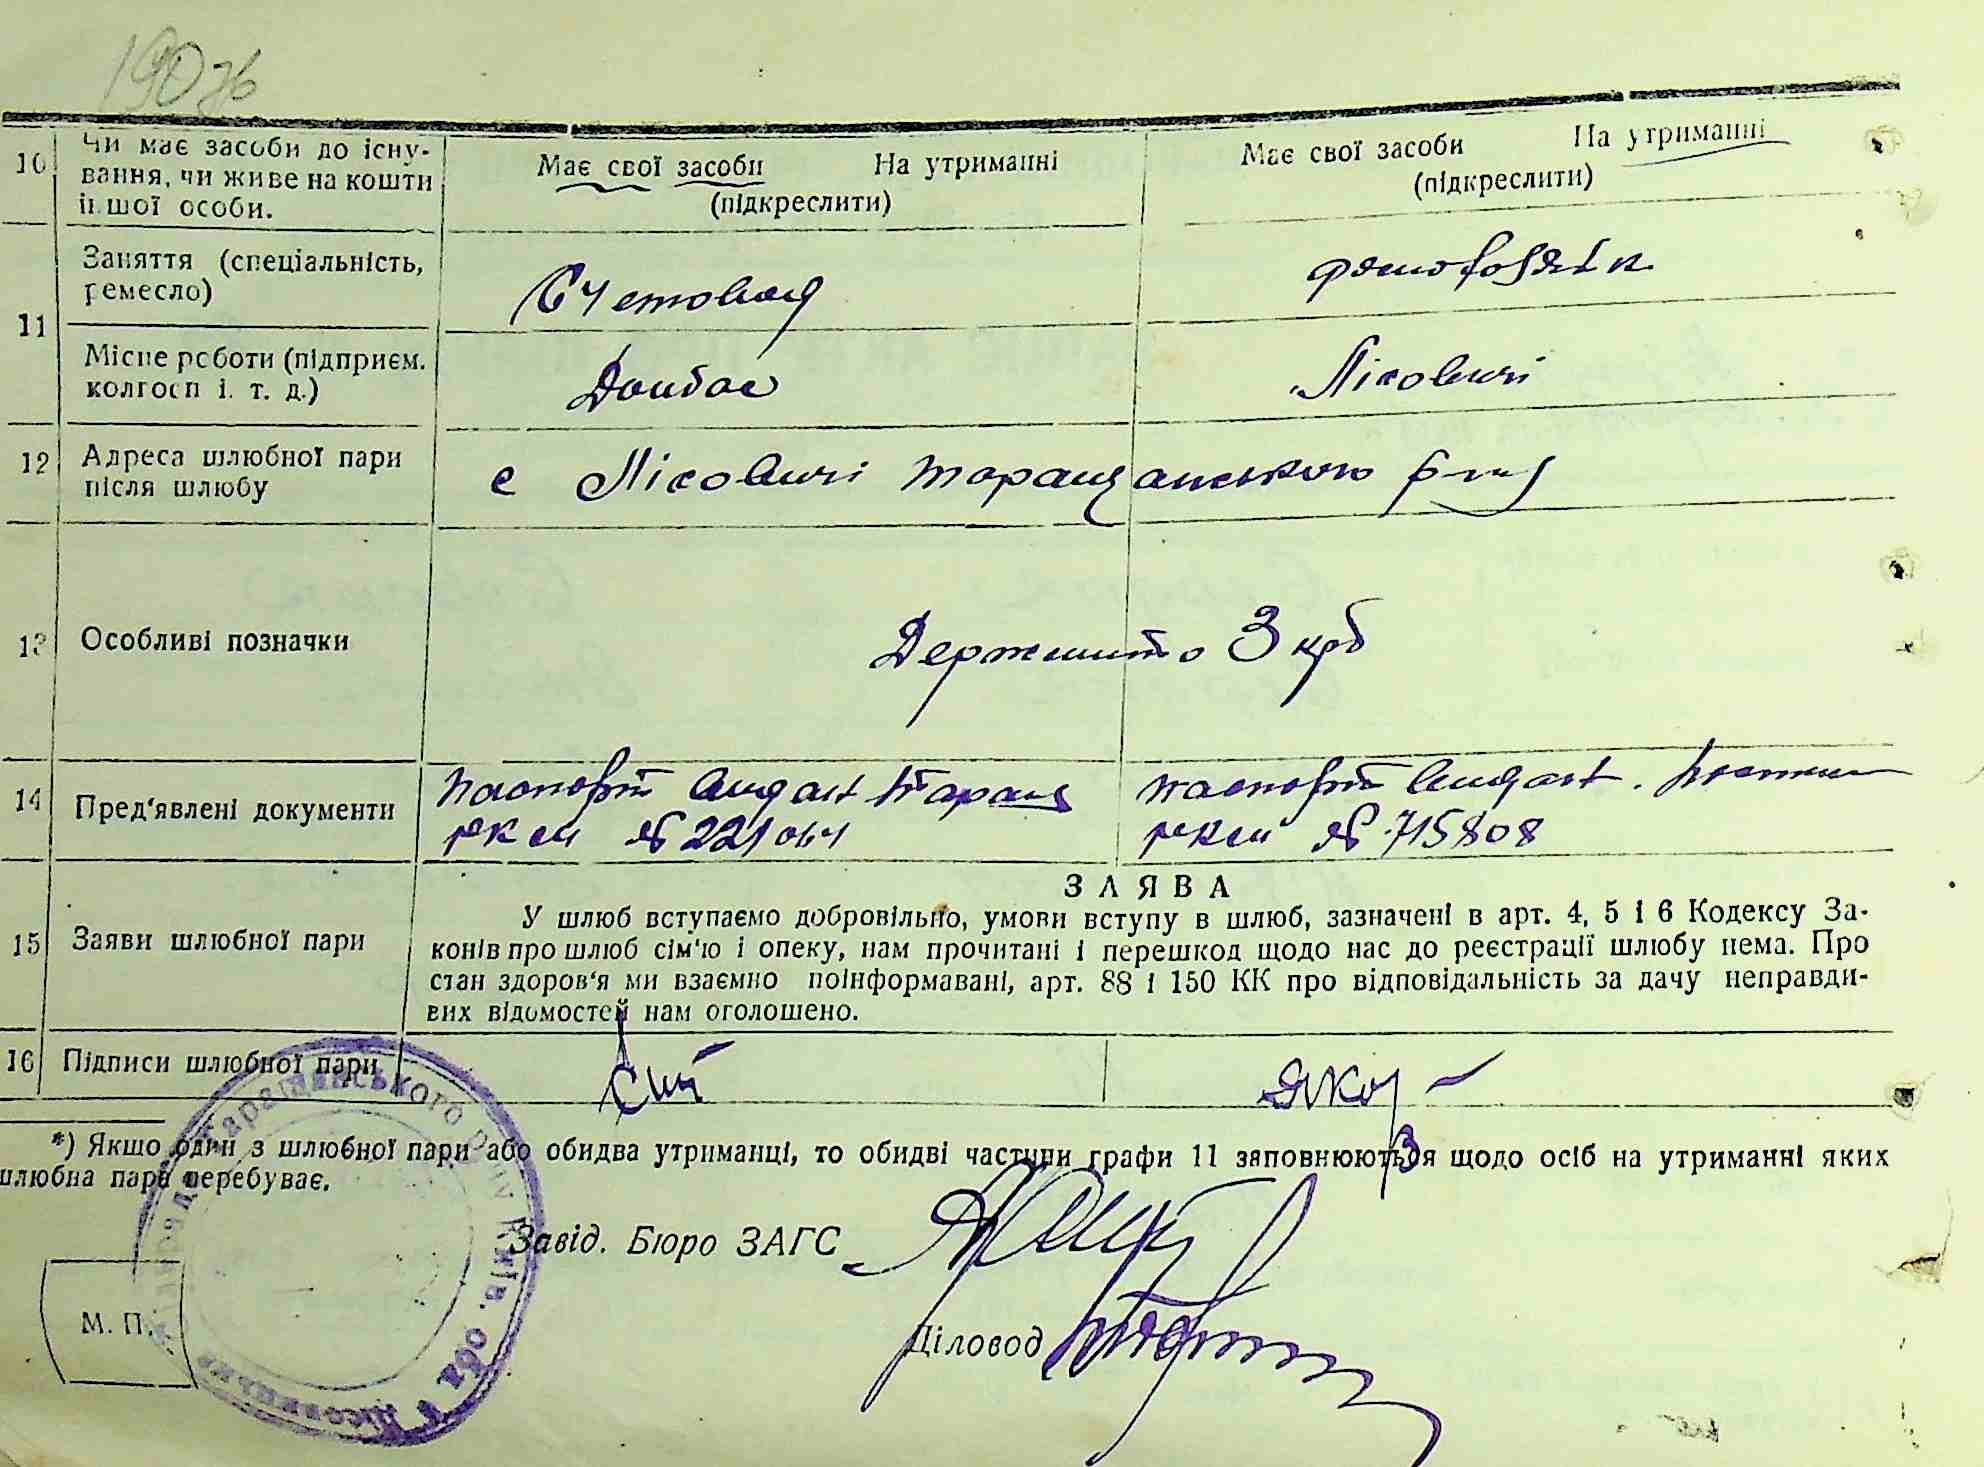 190 зв
10 Чи має засоби до існу-
вання, чи живе на кошти
іншої особи.
Має свої засоби На утриманні
(підкреслити)
Має свої засоби На утриманні
(підкреслити)
11 Заняття (спеціальність,
ремесло)
Счетовод
домогосп
Місце роботи (підприєм.
колгосп і. т. д.)
Донбас
Лісовичі
12 Адреса шлюбної пари
після шлюбу
с Лісовичі Таращанського р-ну
13 Особливі позначки
Держмито 3 крб
14 Пред'явлені документи
паспорт видан Таращ
РКМ № 221064
паспорт видан
РКМ № 715808
15 Заяви шлюбної пари
ЗАЯВА
У шлюб вступаємо добровільно, умови вступу в шлюб, зазначені в арт. 4, 5 і 6 Кодексу За-
конів про шлюб сім'ю і опеку, нам прочитані і перешкод щодо нас до реєстрації шлюбу нема. Про
стан здоров'я ми взаємно поінформавані, арт. 88 і 150 КК про відповідальність за дачу неправди-
вих відомостей нам оголошено.
16 Підписи шлюбної пари
*) Якщо один з шлюбної пари або обидва утриманці, то обидві частини графи 11 заповнюються щодо осіб на утриманні яких
шлюбна пара перебуває.
Завід. Бюро ЗАГС
М. П.
Діловод
Таращанського р-ну Київ. обл.